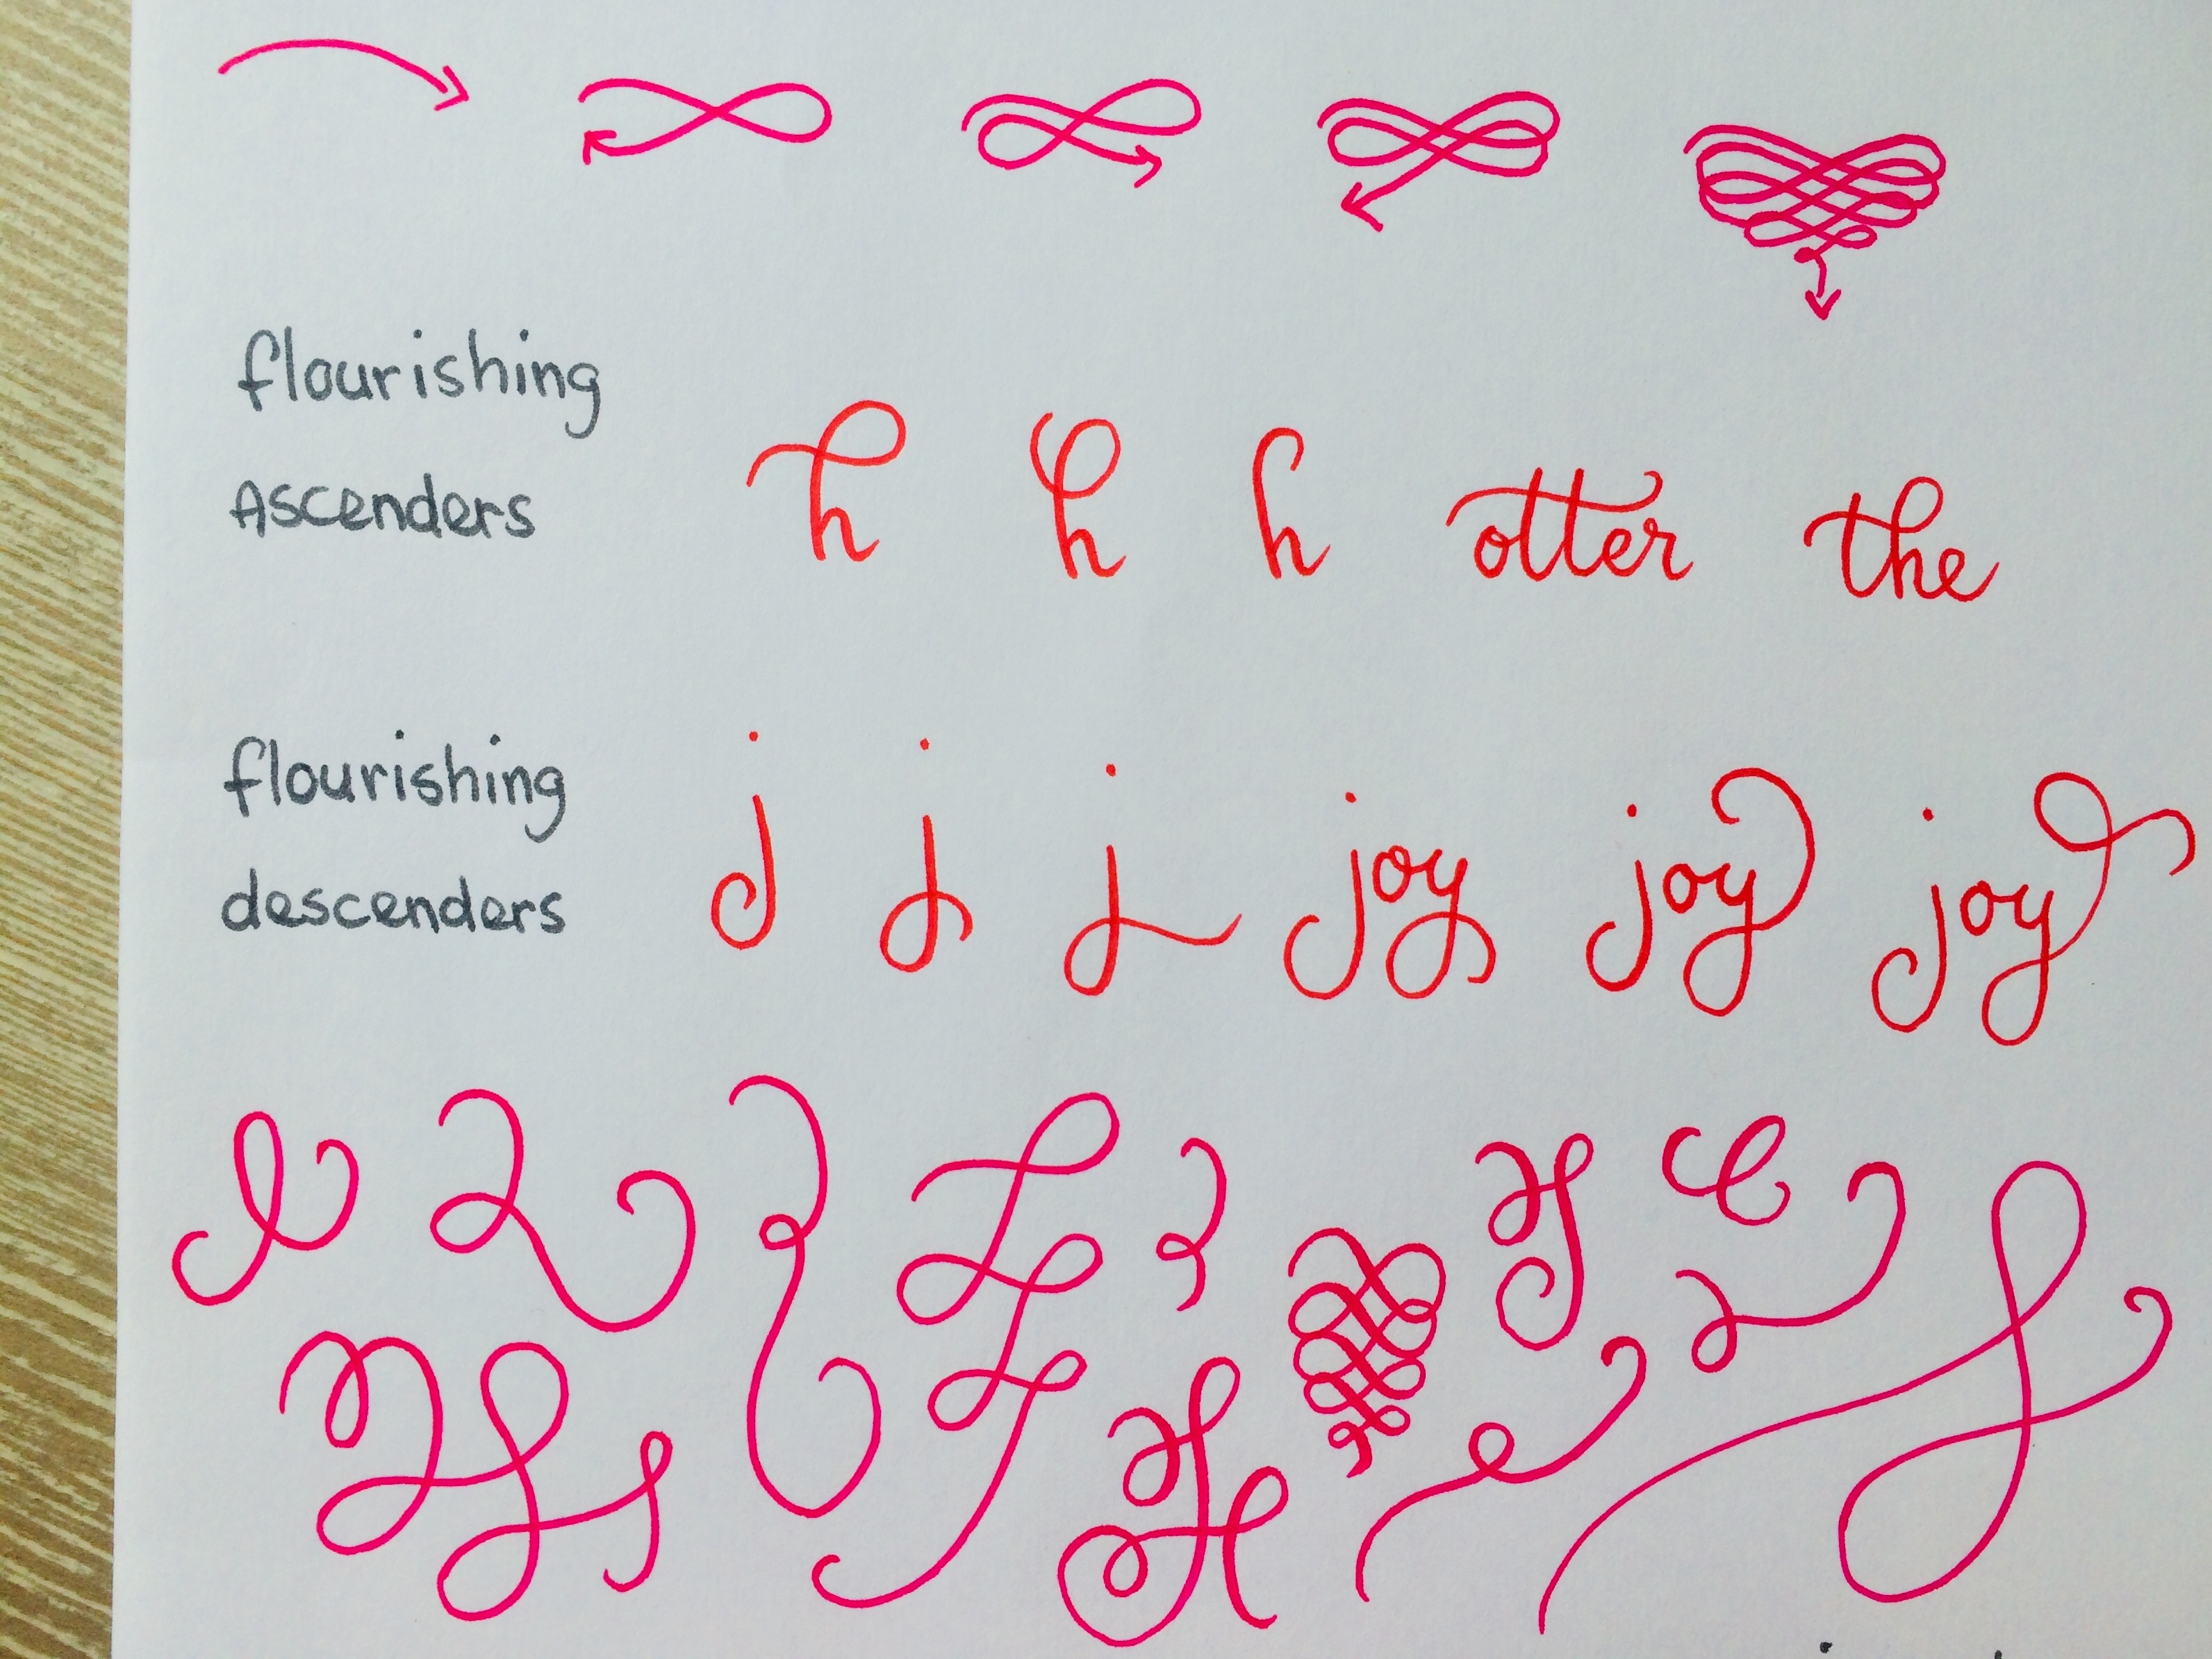 flourishing
Ascenders
h h h otter the
flourishing
descenders
j j j joy joy joy